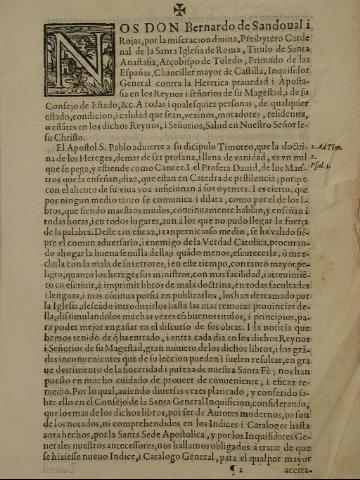 ✠
NOS DON Bernardo de Sandoual i
Rojas, por la miseracion diuina, Presbytero Carde
nal de la Santa Iglesia de Roma, Titulo de Santa
Anastasia, Arçobispo de Toledo, Primado de las
Españas, Chanciller mayor de Castilla, Inquisidor
General contra la Heretica prauedad i Aposta-
sia en los Reynos i señorios de su Magestad, i de su
Consejo de Estado, &c. A todas i qualesquier personas, de qualquier
estado, condicion, i calidad que sean, vezinos, moradores, residentes,
o estãtes en los dichos Reynos, i Señorios, Salud en Nuestro Señor Ie-
su Christo.
El Apostol S. Pablo aduierte a su dicipulo Timoteo, que la doctri-
na de los Hereges, demas de ser profana, i llena de vanidad, es vn mal
que se pega, y estiende como Cancer. I el Profeta Dauid, de los Maes
tros que la enseñan, dize, que estan en Catedra de pestilencia; porque
con el aliento de su viua voz inficionan a sus oyentes. I es cierto, que
por ningun medio tanto se comunica i dilata, como por el de los li-
bros, que siendo maestros mudos, continuamente hablan, y enseñan i
todas horas, i en todos lugares, aun a los que no pudo llegar la fuerça
de la palabra. Deste tan eficaz, i tan pernicioso medio, se ha valido siẽ-
pre el comun aduersario, i enemigo de la Verdad Catolica, procuran-
do ahogar la buena semilla della; i quãdo menos, escurecerla, ò mez-
clarla con la mala de sus errores, i en este tiempo, con tanto mayor pe-
ligro, quanto los hereges sus ministros, con mas facilidad, i atreuimiẽ-
to en escriuir, è imprimir libros de mala doctrina, en todas facultades
i lenguas, i mas cõtinua persia en publicarlos, los han derramado por
la Iglesia, deseãdo introduzirlos hasta las mas remotas prouincias de-
lla, dissimulandolos muchas vezes cõ buenos titulos, i principios, pa-
ra poder mejor engañar en el discurso de sus obras. I la noticia que
hemos tenido de q̃ han entrado, i entra cada dia en los dichos Reynos
i Señorios de su Magestad, gran numero de los dichos libros, i los grã-
des inconuenientes que de su leccion pueden i suelen resultar, en gra-
ue detrimento de la sinceridad i pureza de nuestra Santa Fè; nos han
puesto en mucho cuidado de proueer de conueniente, i eficaz re-
medio. Por lo qual, auiendo diuersas vezes platicado, y conferido so-
bre ello en el Consejo de la Santa General Inquisicion, considerando,
que los mas de los dichos libros, por ser de Autores modernos, no son
de los notados, ni comprehendidos en los Indices i Catalogos hasta
aora hechos, por la Santa Sede Apostolica, y por los Inquisidores Ge-
nerales nuestros antecessores, nos hallamos obligados à tratar de que
se hiziesse nueuo Indice, i Catalogo General, para el qual por mayor
¶ 2 acerta-
2. Ad Tim.
2.
Psal. 1.